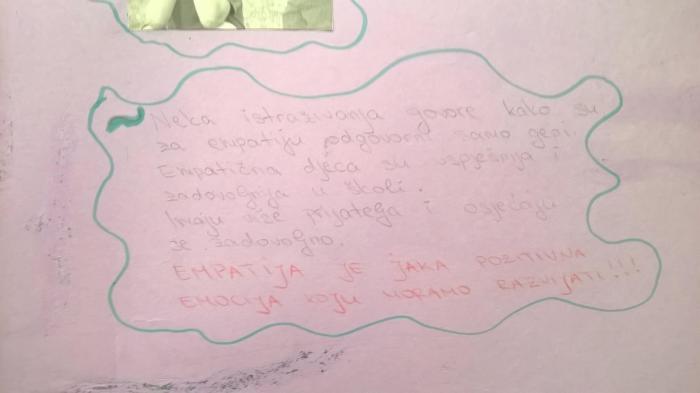 Neka istraživanja govore kako su
za empatiju odgovorni samo geni.
Empatična djeca su uspješnija i
zadovoljnija u školi.
Imaju više prijatelja i osjećaju
se zadovoljno.
EMPATIJA JE JAKA POZITIVNA
EMOCIJA KOJU MORAMO RAZVIJATI!!!